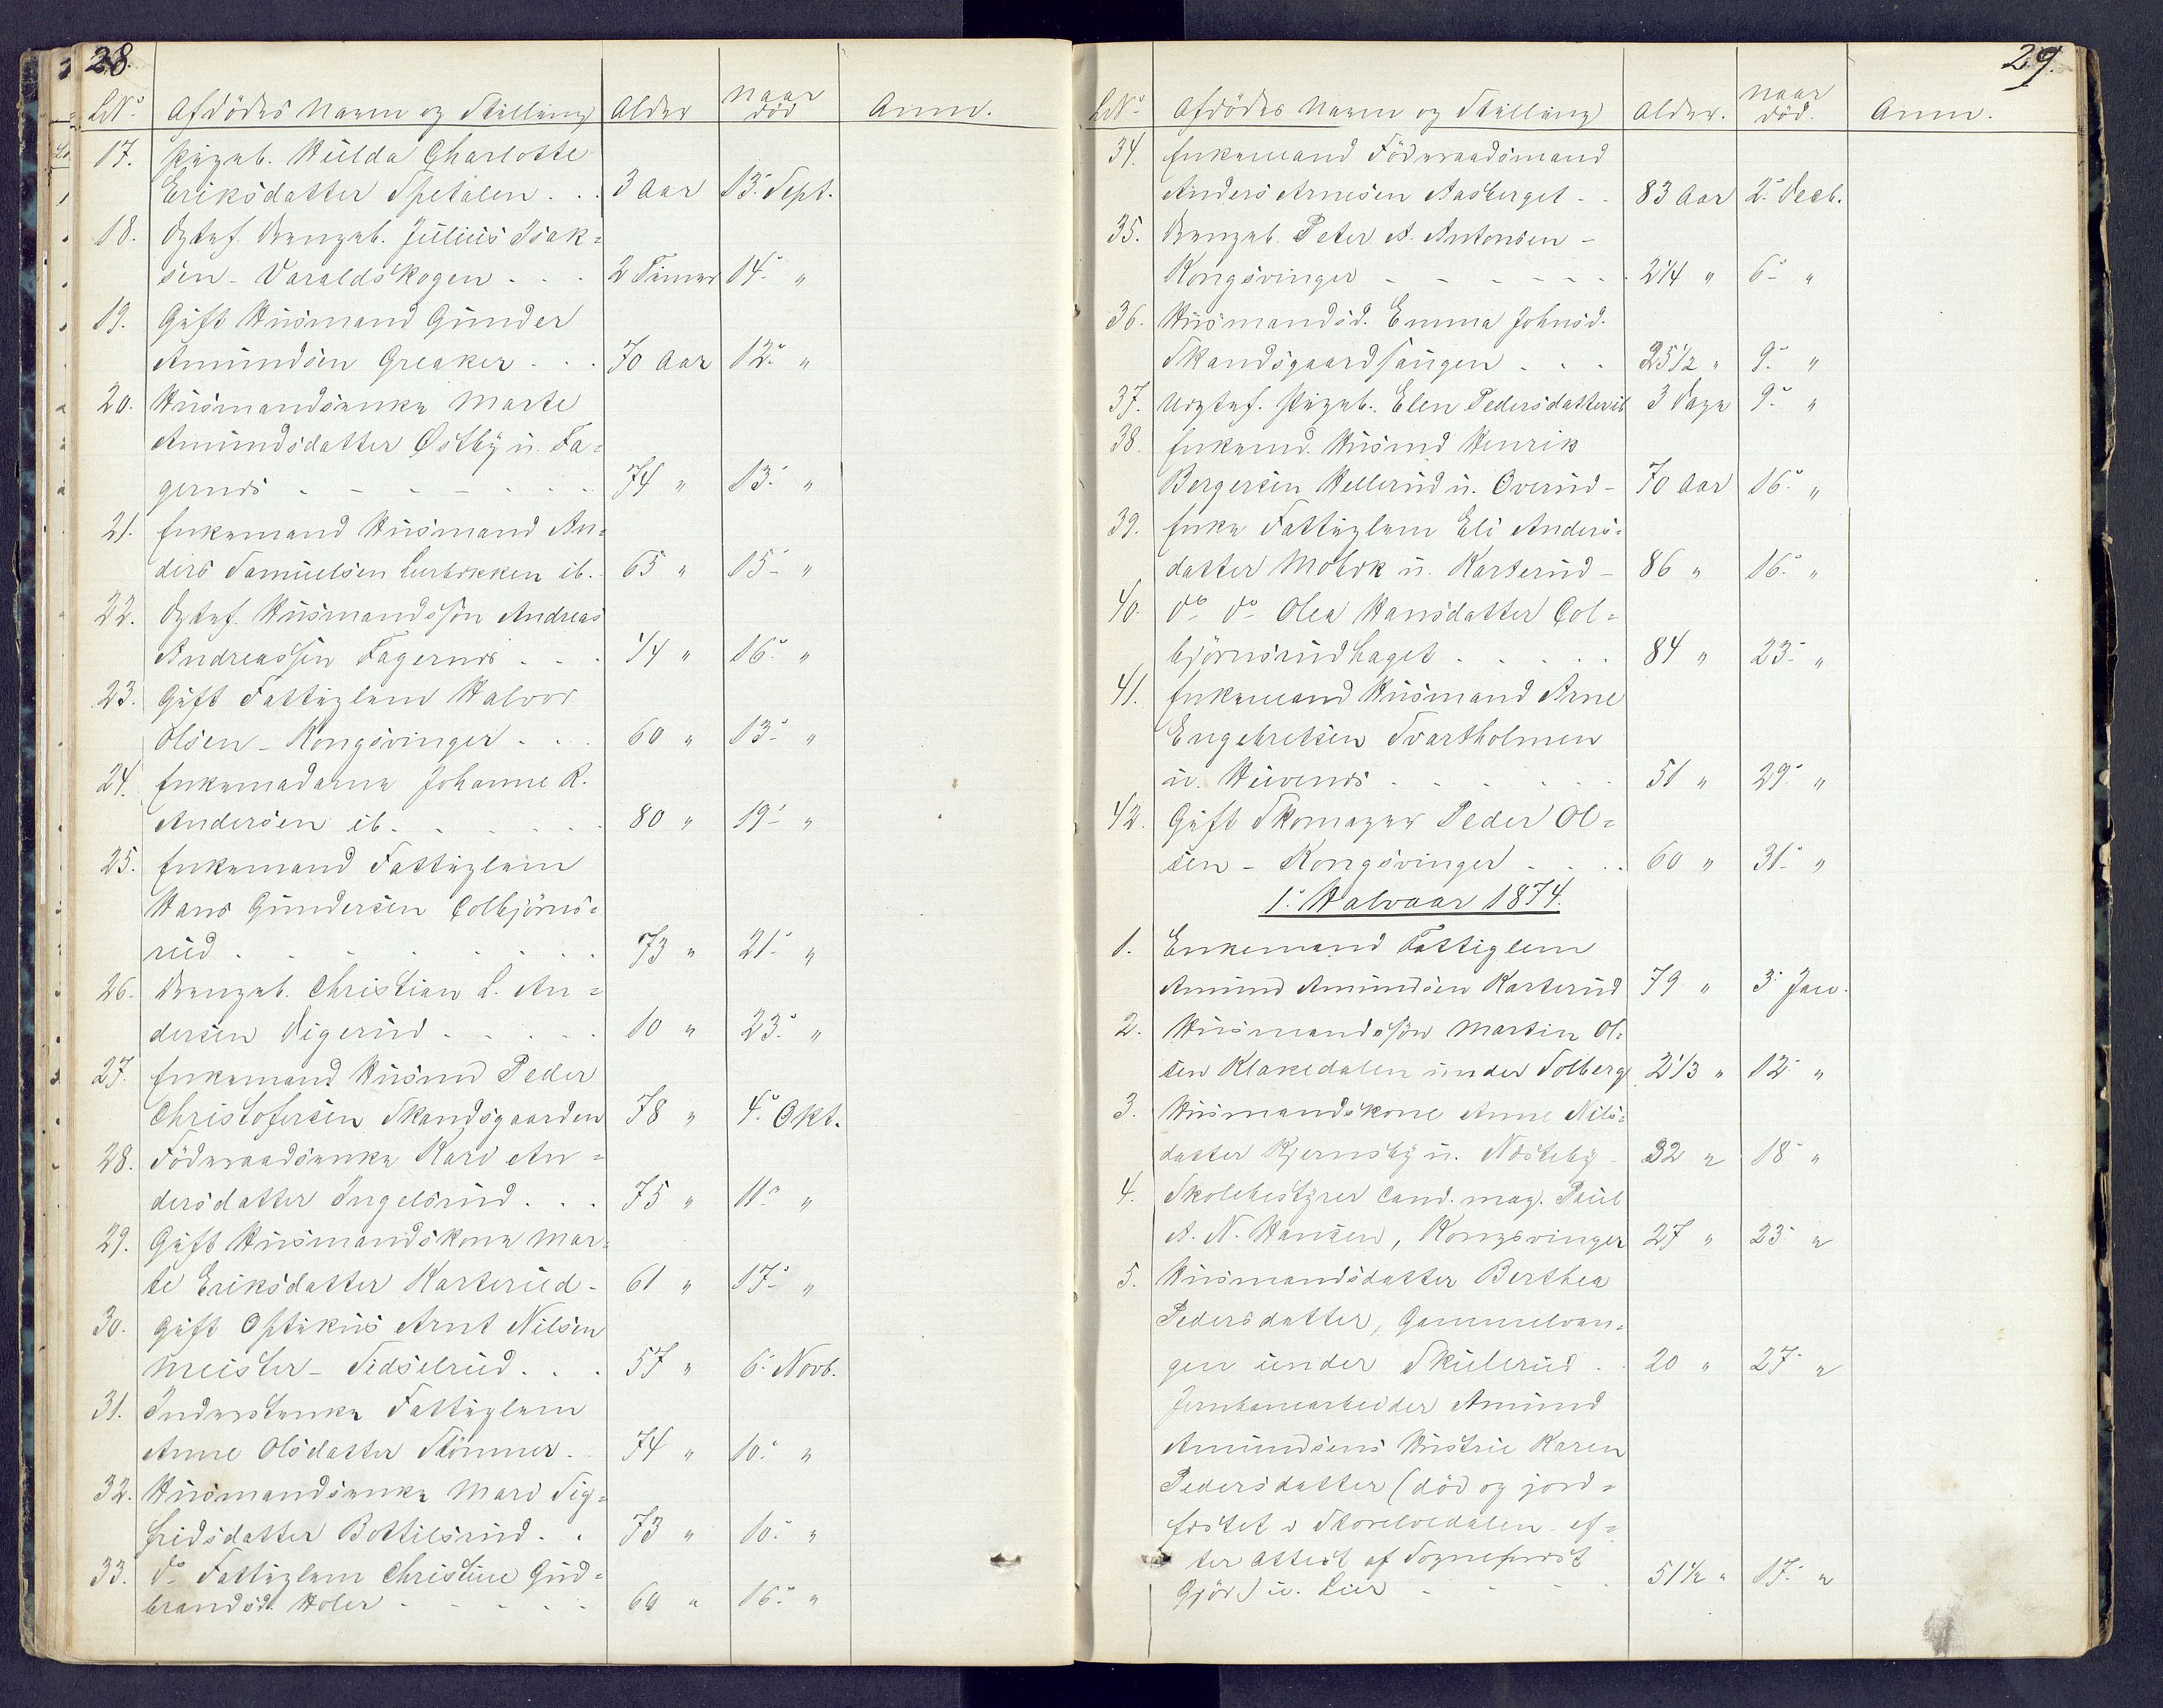 28.
LNo. Afdödes Navn og Stilling Alder Naar död Anm.
17. Pigeb. Hulda Charlotte
Eriksdatter Spetalen . . . 3 Aar 13. Sept.
18. Ægtef. Drengeb. Julius Isak=
sen - Varaldskogen . . . 2 Timer 14. "
19. Gift Husmand Gunder
Amundsen Greaker . . . 70 Aar 12. "
20. Husmandsenke Marte
Amundsdatter Østby u. Fa=
gernes - - - - - 74 " 13. "
21. Enkemand Husmand An=
ders Samuelsen Lurbækken ib. 65 " 15. "
22. Ægtef. Husmandssøn Andreas
Andreassen Fagernes . . . 1/4 " 16. "
23. Gift Fattiglem Halvor
Olsen - Kongsvinger . . . 60 " 13. "
24. Enkemadame Johanne R.
Andersen ib. . . . . 80 " 19. "
25. Enkemand Fattiglem
Hans Gundersen Colbjörns=
rud . . . . . 73 " 21. "
26. Drengeb. Christian L. An=
dersen Digerud . . . . 10 " 23. "
27. Enkemand Husmd Peder
Christofersen Skandsgaarden 78 " 4. Okt.
28. Föderaadsenke Kari An=
dersdatter Ingelsrud . . . 75 " 11. "
29. Gift Husmandskone Mar=
te Eriksdatter Karterud - 61 " 17. "
30. Gift Optikus Arnt Nilsen
Meister - Sidselrud . . . 57 " 6. Novb.
31. Inderstenke Fattiglem
Anne Olsdatter Stömner . . 74 " 10. "
32. Husmandsenke Mari Sig=
fridsdatter Bottilsrud . . 73 " 10. "
33. do Fattiglem Christine Gud=
brandsd. Holer - - - - 60 " 16. "
29.
LNo. Afdödes Navn og Stilling Alder. Naar död. Anm.
34. Enkemand Föderaadsmand
Anders Arnesen Aasberget - - 83 Aar 2. Decb.
35. Drengeb. Peter A. Antonsen -
Kongsvinger - - - - - 2 1/4 " 6. "
36. Husmandsd. Emma Johnsd.
Skandsgaardsangen . . . 25 1/2 " 9. "
37. Uægtef. Pigeb. Elen Pedersdatter ib 3 Dage 9. "
38. Enkemd. Husmd Henrik
Bergersen Hellerud u. Overud - 70 Aar 16. "
39. Enke Fattiglem Eli Anders=
datter Mobæk u. Karterud - 86 " 16. "
40. do do Olea Hansdatter Col=
björnsrudhaget . . . . . 84 " 23. "
41. Enkemand Husmand Arne
Engebretsen Svartholmen
u. Huvenes . . . . . 51 " 29. "
42. Gift Skomager Peder Ol=
sen - Kongsvinger . . . . 60 " 31. "
1. Halvaar 1874.
1. Enkemand Fattiglem
Amund Amundsen Karterud 79 " 3. Jan.
2. Husmandssøn Martin Ol=
sen Klakedalen under Solberg 2 1/3 " 12. "
3. Husmandskone Anne Nils=
datter Kjernsby u. Nøsteby - 32 " 18 "
4. Skolebestyrer Cand. mag. Paul
A. N. Hansen, Kongsvinger 27 " 23. "
5. Husmandsdatter Berthea
Pedersdatter, Gammelvan=
gen under Skulerud . . 20 " 27. "
Jernbanearbeider Amund
Amundsens Hustrue Karen
Pedersdatter (död og jord=
fæstet i Storelvedalen ef=
ter Attest af Sognepræst
Gjör) u. Lier - - - - 51 1/2 " 17. "